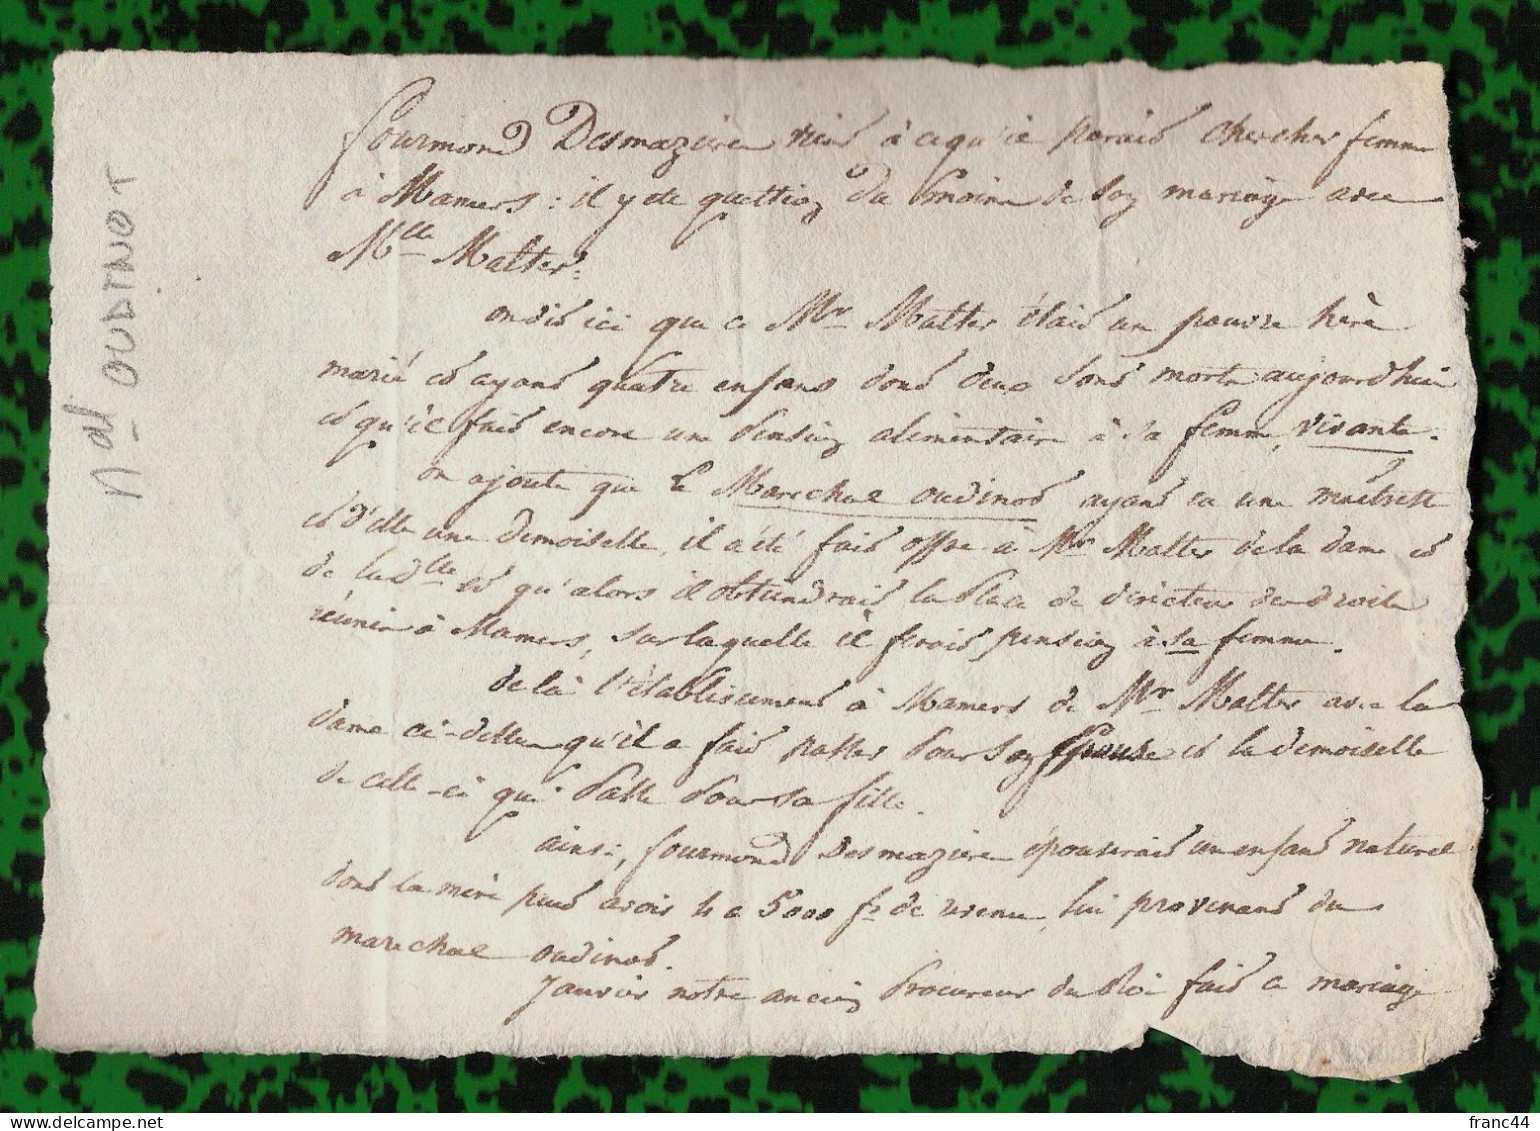 fourmond Desmaziere vient à ce qu'il parait chercher femme
à Mamers : il y ete question du moins de son mariage avec
Mlle Malter.
on dit ici que ce Mr Malter était un pauvre hère
marié et ayant quatre enfans dont deux sont morts aujourd'hui
et qu'il fait encore une pension alimentaire à sa femme, vivante.
on ajoute que le Marechal oudinot ayant eu une maitresse
et d'elle une demoiselle, il a été fait offre à Mr Malter de la dame et
de la dlle et qu'alors il obtiendrait la place de directeur des droits
réunis à Mamers, sur laquelle il feroit pension à sa femme.
de là l'établissement à Mamers de Mr Malter avec la
dame ci-dessus qu'il a fait passer pour son Epouse et la demoiselle
de celle-ci qui passe pour sa fille.
ainsi, fourmond Desmaziere épouserait un enfant naturel
dont la mère peut avoir 4 a 5000 fr de revenu, lui provenant du
marechal oudinot.
Janvier notre ancien Procureur du Roi fait ce mariage
Mal OUDINOT
franc44